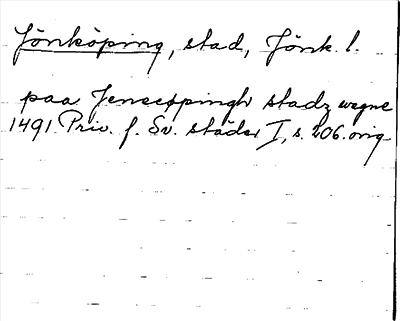 Jönköping, stad, Jönk. l.
paa Jenecøpingh stadz wegne
1491 Priv. f. Sv. städer I, s. 206. orig.